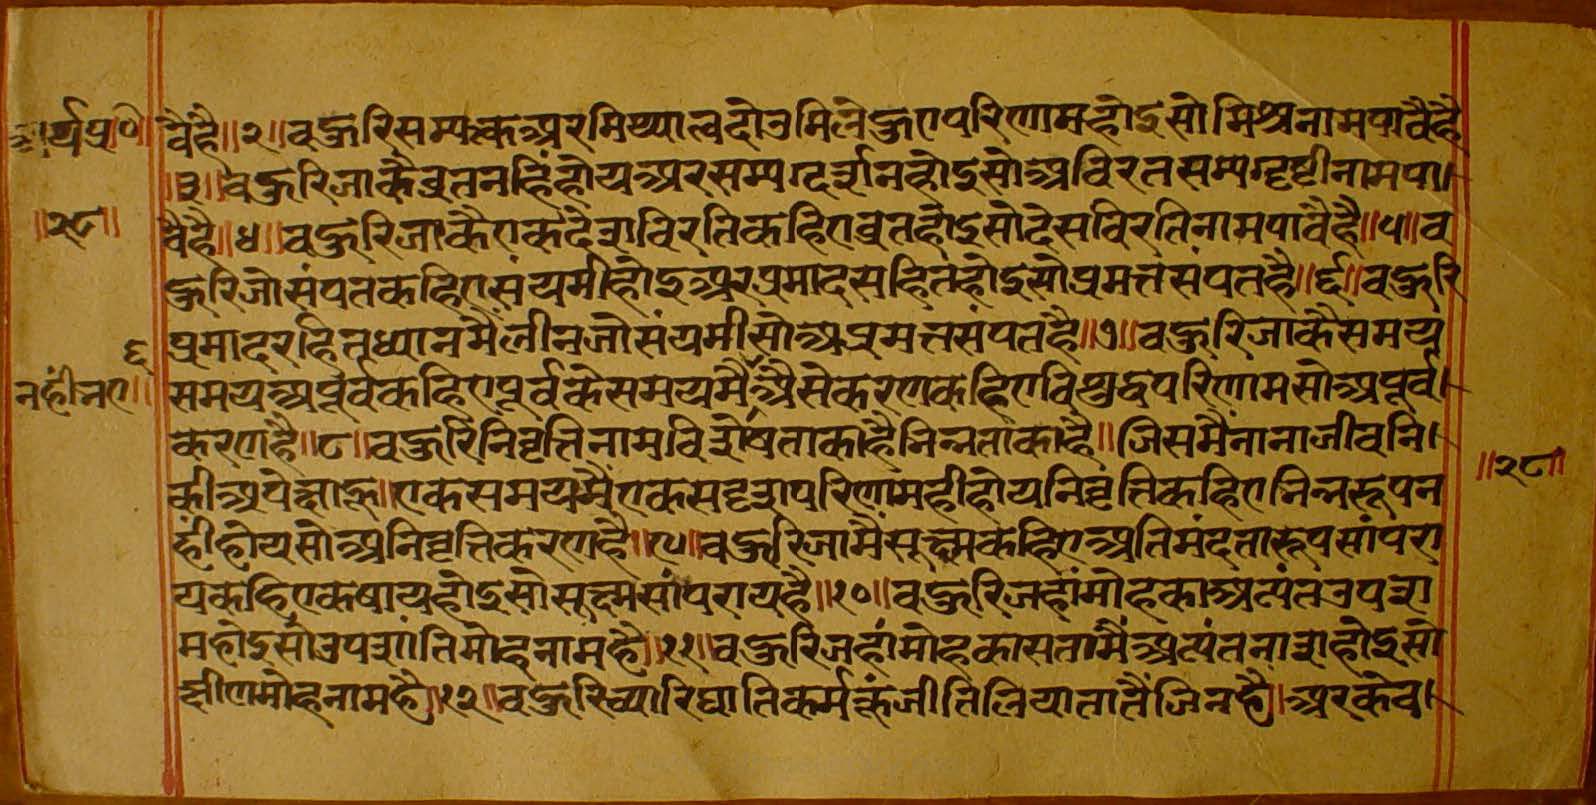 वैहै॥२॥वहुरिसम्यक्तअरमिथ्यात्वदोउमिलेहुएपरिणामहोइसोमिश्रनामपावैहै
॥३॥वहुरिजाकैव्रतनहिंहोयअरसम्यग्दर्शनहोइसोअविरतसम्यग्दृष्टीनामपा।
वैहै॥४॥वहुरिजाकैएकदेशविरतिकहिएव्रतहोइसोदेसविरतिनामपावैहै॥५॥व
हुरिजोसंयतकहिएसंयमीहोइअरप्रमादसहितहोइसोप्रमत्तसंयतहै॥६॥वहुरि
प्रमादरहितध्यानमैंलीनजोसंयमीसोअप्रमत्तसंयतहै॥७॥वहुरिजाकैसमय
समयअपूर्वकहिएपूर्वकेसमयमैंअैसेकरणकहिएविशुद्धपरिणामसोअपूर्व।
करणहै॥८॥वहुरिनिवृत्तिनामविशेषताकाहैभिन्नताकाहै॥जिसमैंनानाजीवनि।
कीअपेक्षाहू॥एकसमयमैंएकसदृशपरिणामहीहोयनिवृत्तिकहिएभिन्नरूपन
हींहोयसोअनिवृत्तिकरणहै॥९॥वहुरिजामैंसूक्ष्मकहिएअतिमंदतारूपसांपरा
यकहिएकषायहोइसोसूक्ष्मसांपरायहै॥१०॥वहुरिजहांमोहकाअत्यंतउपशा
महोइसोउपशांतिमोहनामहै॥११॥वहुरिजहांमोहकासतामैंअत्यंतनाशहोइसो
क्षीणमोहनामहै॥१२॥वहुरिच्यारिघातिकर्मकूंजीतिलियातातैंजिनहै।अरकेव।
॥२८॥
६
नहींभए॥
॥२८॥